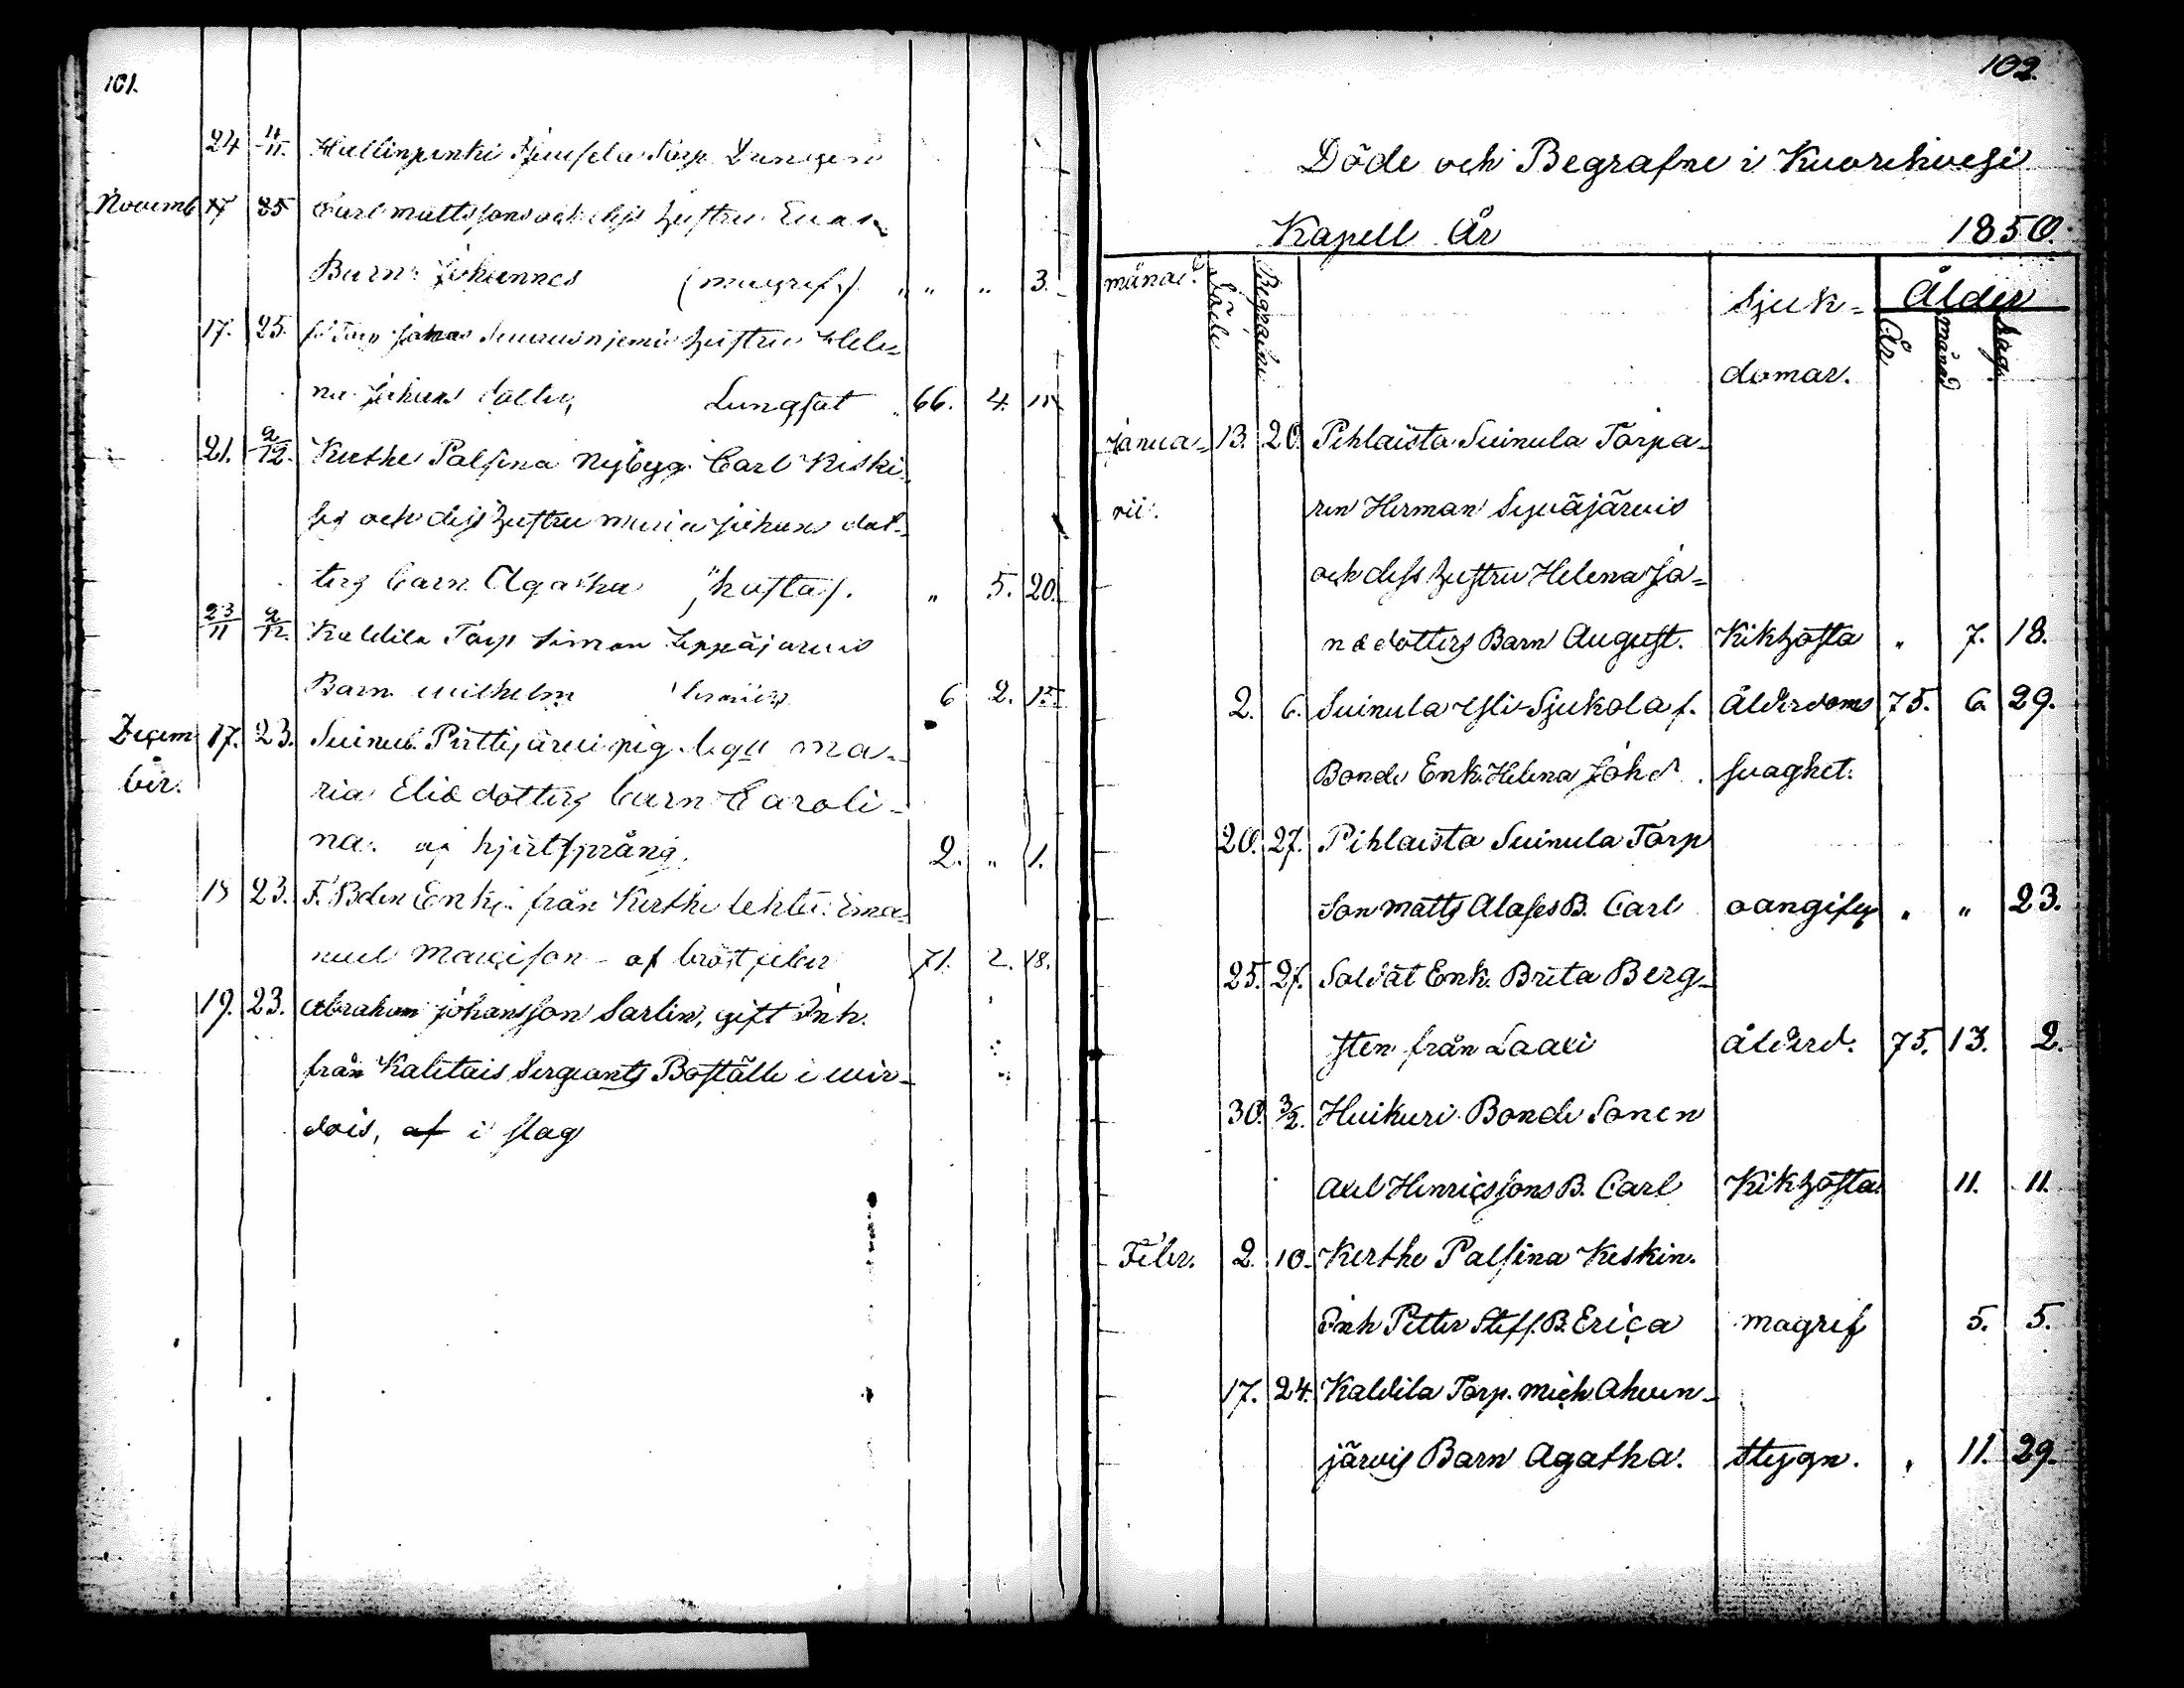 101.
24 4/11. Hallinpenki Torp
Novemb 17 25 Carl Mattssons och dess hustru Evas
Barn Johannes (magref) " " " 3.
17. 25. Torp Johan hustru Hele=
na Johans dotter, Lungsot 66. 4. 11
21. 2/12. Kerthe Palsina Nybyg. Carl Kiski
och dess hustru Maria Johans dot=
ters barn Agatha hosta. " 5. 20.
23/11 2/12. Kaldila Torp Simon Leppäjärvis
Barn Wilhelm 6 2. 15
Decem 17. 23. Suinul. Pirttijärvi pig. Ma=
ber.
ria Eliæ dotters barn Caroli=
na. af hjertsprång. 2. " 1.
18 23. F. Bden Enkl. från Kerthe lehti. Ema=
nuel Marcison - af bröstfeber 71. 2. 18.
19. 23. Abraham Johansson Sarlin, gift Inh.
från Kaletais Sergeants Boställe i Wir=
dois, af i slag
102.
Döde och Begrafne i Kuorehvesi
Kapell År 1850.
månad. Döde Begrafne Sjuk= Ålder
domar. År månad dag.
Janua= 13. 20. Pihlaista Suinula Torpa=
rii. ren Herman Syväjärvis
och dess hustru Helena Jo=
næ dotters Barn August. Kikhosta " 7. 18.
2. 6. Suinula Yli-Sjukola f. Ålderdoms 75. 6. 29.
Bonde Enk. Helena Johd. svaghet.
20. 27. Pihlaista Suinula Torp
Son Matts Alases B. Carl oangifv " " 23.
25. 27. Soldat Enk. Brita Berg=
sten från Laaxi Ålderd. 75. 13. 2.
30. 3/2. Huikuri Bonde Sonen
Axel Henricssons B. Carl Kikhosta. 11. 11.
Febr. 2. 10. Kerthe Palsina Keskin.
Inh Petter Steff. B. Erica magref 5. 5.
17. 24. Kaldila Torp. Mich Ahven=
järvis Barn Agatha. Stygn. " 11. 29.